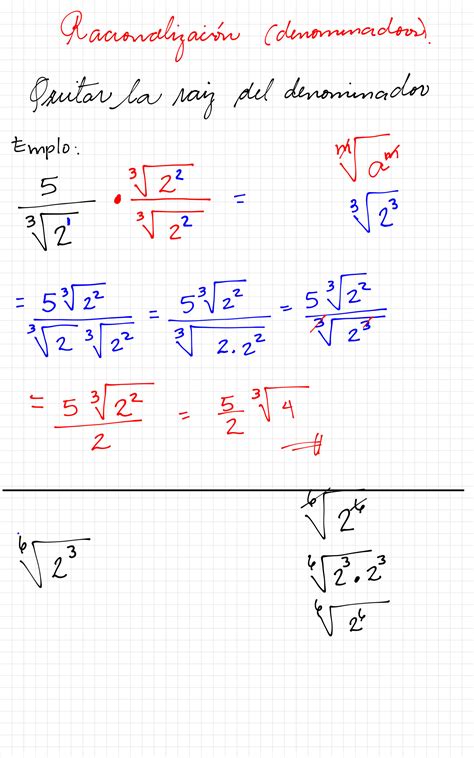 Racionalización (denominadores).
Quitar la raiz del denominador
Emplo:
5/∛2¹ • ∛2²/∛2² =
ᵐ√aᵐ
∛2³
= 5∛2²/∛2 ∛2² = 5∛2²/∛2.2² = 5∛2²/∛2³
= 5∛2²/2 = 5/2 ∛4
⁶√2³
⁶√2⁶
⁶√2³ • 2³
⁶√2⁶